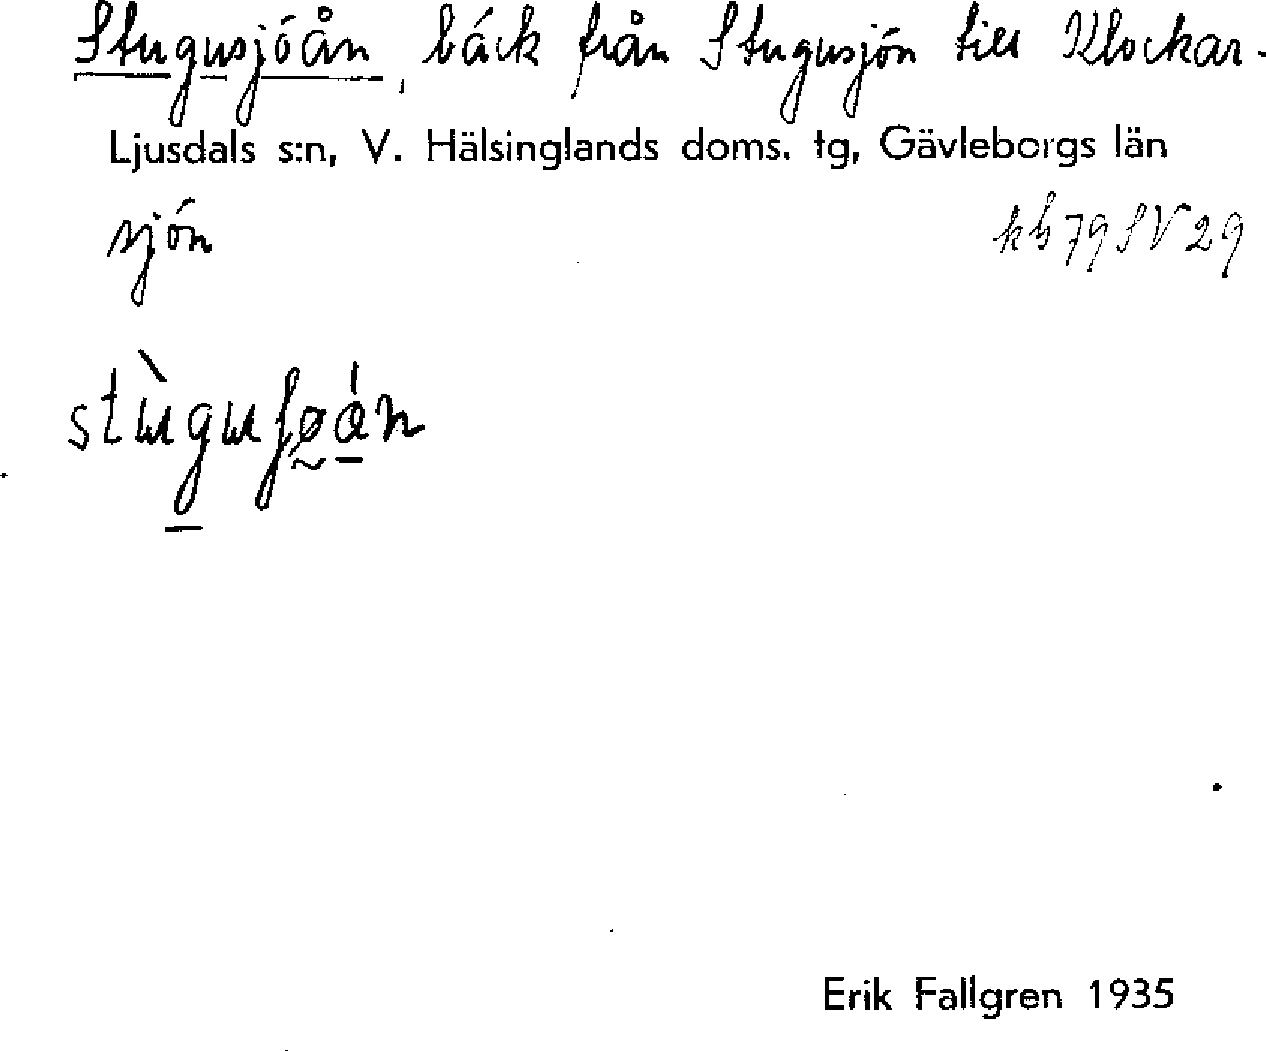 Stugusjöån, bäck från Stugusjön till Klockar-
Ljusdals s:n, V. Hälsinglands doms. tg, Gävleborgs län
sjön
kb 79 SV 29
Erik Fallgren 1935